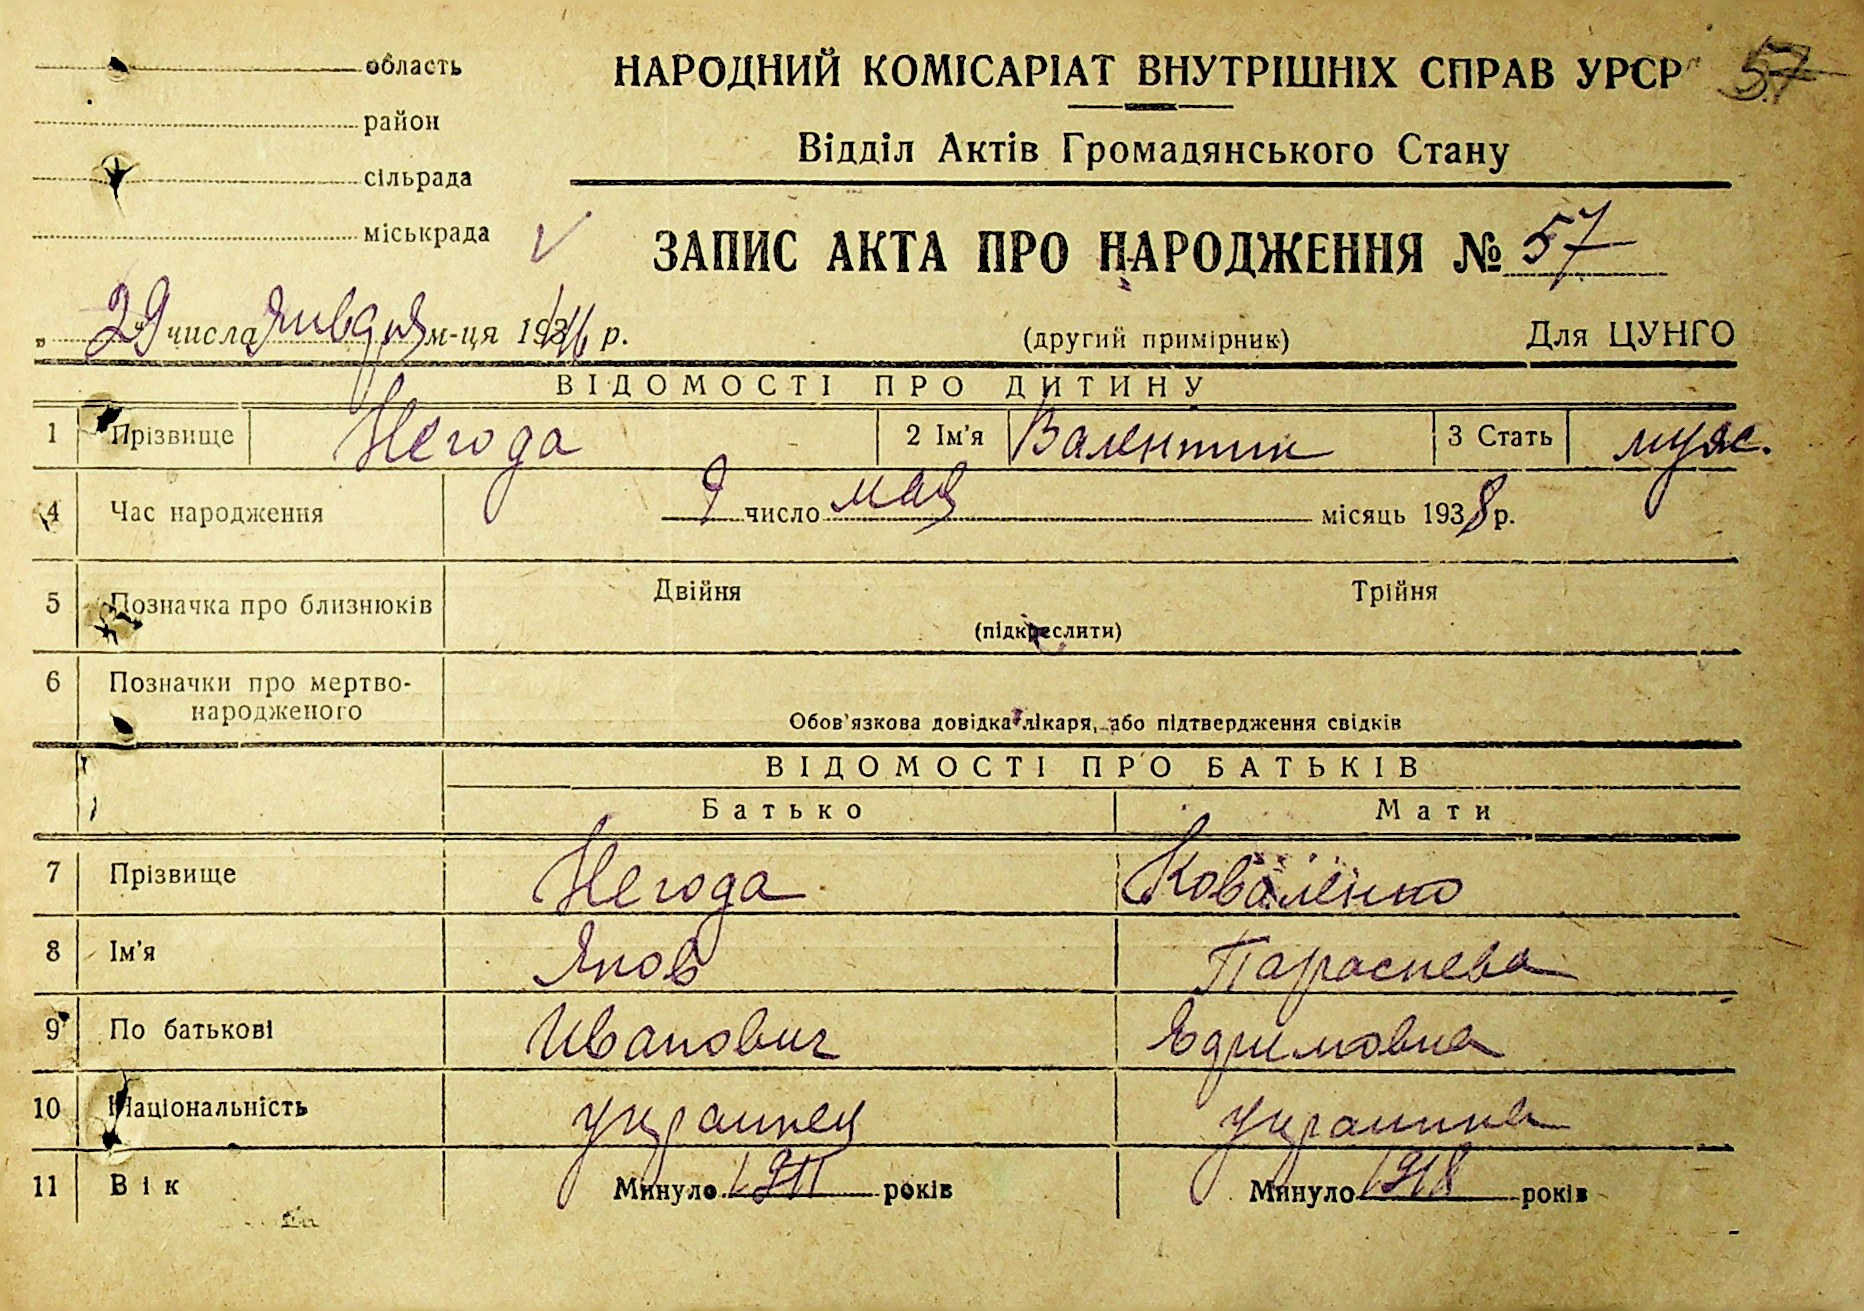 область
район
сільрада
міськрада
НАРОДНИЙ КОМІСАРІАТ ВНУТРІШНІХ СПРАВ УРСР
57
Відділ Актів Громадянського Стану
ЗАПИС АКТА ПРО НАРОДЖЕННЯ № 57
„ 29 числа января м-ця 1946 р.
(другий примірник)
Для ЦУНГО
ВІДОМОСТІ ПРО ДИТИНУ
1 Прізвище Негода 2 Ім'я Валентин 3 Стать муж.
4 Час народження 9 число мая місяць 1938 р.
5 Позначка про близнюків Двійня Трійня
(підкреслити)
6 Позначки про мертво-
народженого
Обов'язкова довідка лікаря, або підтвердження свідків
ВІДОМОСТІ ПРО БАТЬКІВ
Батько Мати
7 Прізвище Негода Коваленко
8 Ім'я Яков Парасковья
9 По батькові Иванович Ефимовна
10 Національність украинец украинка
11 Вік Минуло 1911 років Минуло 1918 років